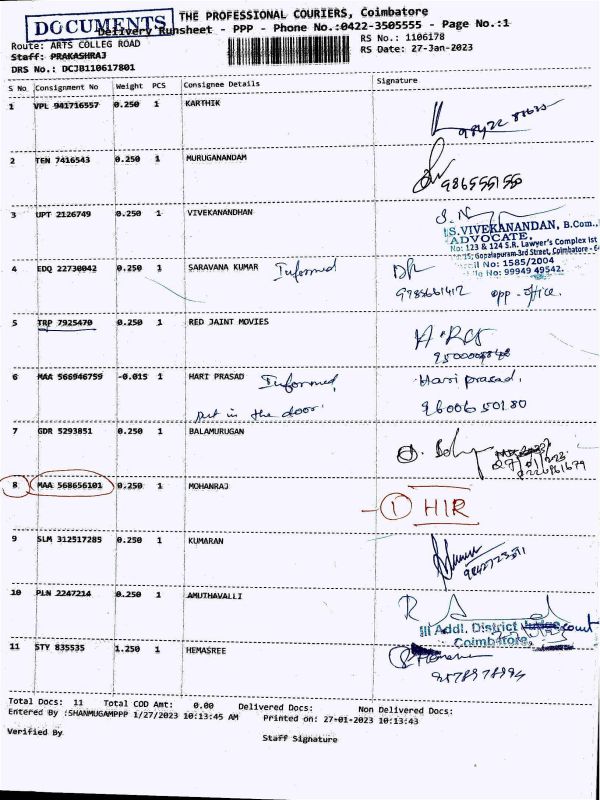 DOCUMENTS
THE PROFESSIONAL COURIERS, Coimbatore
Delivery Runsheet - PPP - Phone No.:0422-3505555 - Page No.:1
Route: ARTS COLLEG ROAD
RS No.: 1106178
Staff: PRAKASHRAJ
RS Date: 27-Jan-2023
DRS No.: DCJB110617801
S No Consignment No Weight PCS Consignee Details Signature
1 VPL 941716557 0.250 1 KARTHIK
2 TEN 7416543 0.250 1 MURUGANANDAM
3 UPT 2126749 0.250 1 VIVEKANANDHAN
S.VIVEKANANDAN, B.Com.,
ADVOCATE,
No: 123 & 124 S.R. Lawyer's Complex Ist
Gopalapuram 3rd Street, Coimbatore - 
No: 1585/2004
No: 99949 49542.
4 EDQ 22730042 0.250 1 SARAVANA KUMAR Informed
opp. office.
5 TRP 7925470 0.250 1 RED JAINT MOVIES
6 MAA 566946759 -0.015 1 HART PRASAD Informed Hari prasad.
put in the door. 9600650180
7 GDR 5293851 0.250 1 BALAMURUGAN
8 MAA 568656101 0.250 1 MOHANRAJ 1 HIR
9 SLM 312517285 0.250 1 KUMARAN
10 PLN 2247214 0.250 1 AMUTHAVALLI
III Addl. District court
Coimbatore
11 STY 835535 1.250 1 HEMASREE
Total Docs: 11 Total COD Amt: 0.00 Delivered Docs: Non Delivered Docs:
Entered By :SHANMUGAMPPP 1/27/2023 10:13:45 AM Printed on: 27-01-2023 10:13:43
Verified By Staff Signature